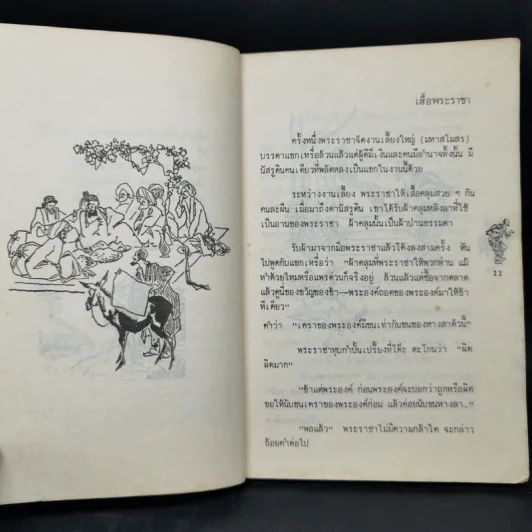 เสื้อพระราชา
ครั้งหนึ่งพระราชาจัดงานเลี้ยงใหญ่ (มหาสโมสร)
บรรดาแขกเหรื่อล้วนแล้วแต่ผู้ดีมีเงินและคนมีอำนาจทั้งนั้น มี
นัสรูดินคนเดียวที่พลัดหลงเป็นแขกในงานนี้ด้วย
ระหว่างงานเลี้ยง พระราชาให้เสื้อคลุมสวย ๆ กัน
คนละผืน เมื่อมาถึงตานัสรูดิน เขาได้รับผ้าคลุมหลังลาที่ใช้
เป็นอานของพระราชา ผ้าคลุมนั้นเป็นผ้าป่านธรรมดา
รับผ้ามาจากมือพระราชาแล้วโค้งลงสามครั้ง หัน
ไปพูดกับแขกเหรื่อว่า "ผ้าคลุมที่พระราชาให้พวกท่าน แม้
ทำด้วยไหมหรือแพรต่วนก็จริงอยู่ ล้วนแล้วแต่ซื้อจากตลาด
แล้วดูนี่ของขวัญของข้า--พระองค์ถอดของพระองค์มาให้ข้า
ทีเดียว"
คำว่า "เคราของพระองค์มีขนเท่ากับขนของหางลาตัวนี้"
พระราชาทุบกำปั้นเปรี้ยงที่โต๊ะ ตะโกนว่า "ผิด
ผิดมาก"
"ข้าแต่พระองค์ ก่อนพระองค์จะบอกว่าถูกหรือผิด
ขอให้นับขนเคราของพระองค์ก่อน แล้วค่อยนับขนหางลา."
"พอแล้ว" พระราชาไม่มีความกล้าใด จะกล่าว
ถ้อยคำต่อไป
11